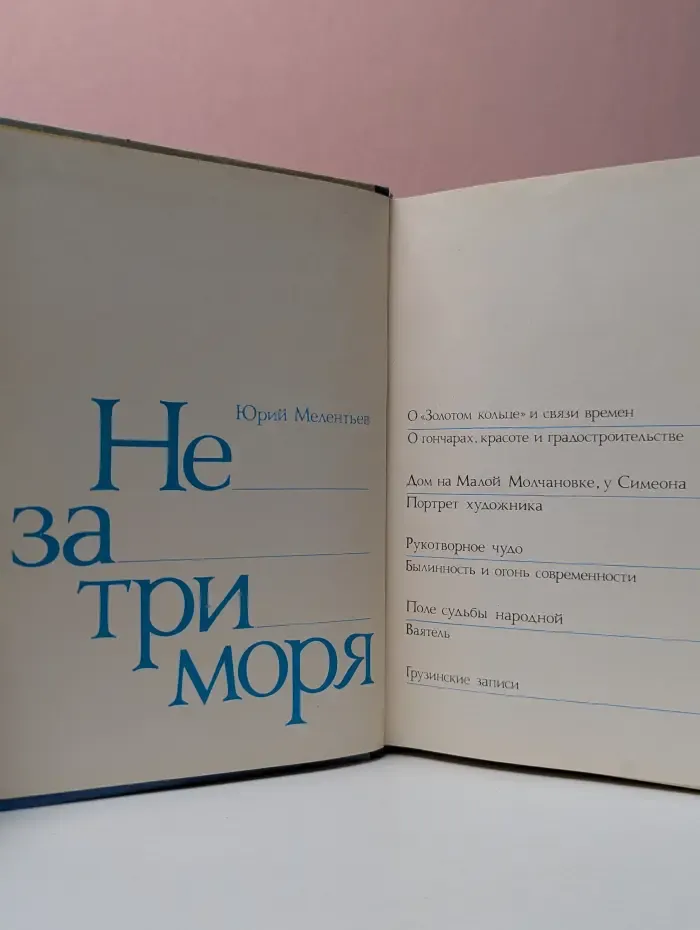 Юрий Мелентьев
Не
за
три
моря
О «Золотом кольце» и связи времен
О гончарах, красоте и градостроительстве
Дом на Малой Молчановке, у Симеона
Портрет художника
Рукотворное чудо
Былинность и огонь современности
Поле судьбы народной
Ваятель
Грузинские записи